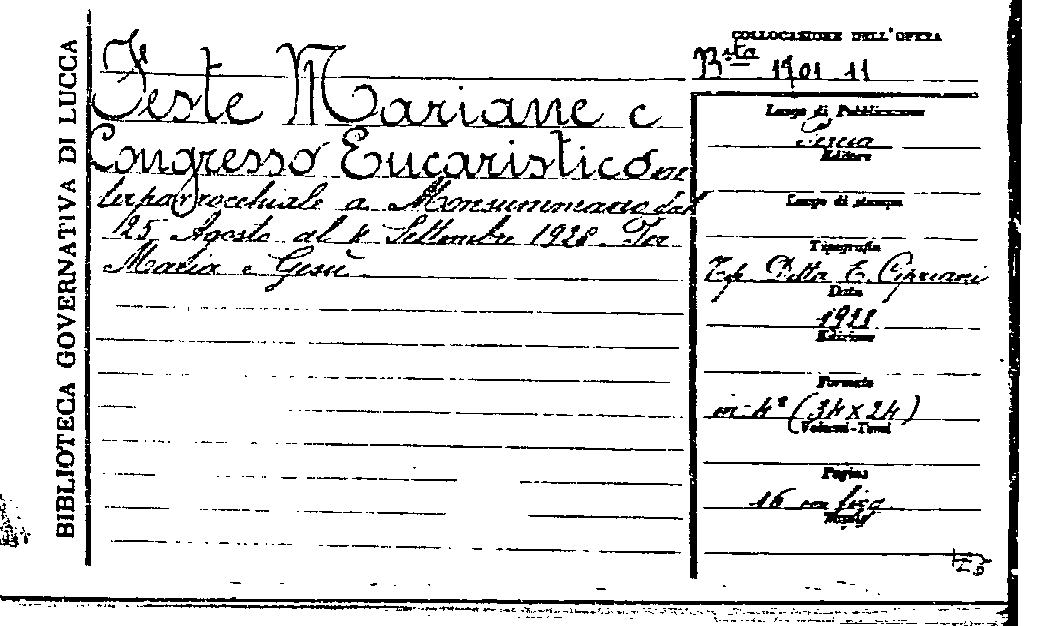 BIBLIOTECA GOVERNATIVA DI LUCCA
Feste Mariane e
Congresso Eucaristico in
terparrocchiale a Monsummano dal
25 Agosto al 4 Settembre 1928. Per
Maria e Gesù
COLLOCAZIONE DELL'OPERA
B.sta 1701.11
Luogo di Pubblicazione
Pescia
Editore
Luogo di stampa
Tipografia
Tip. Ditta E. Cipriani
Data
1928
Edizione
Formato
in 4° (34x24)
Volumi-Tomi
Pagine
16 con figg.